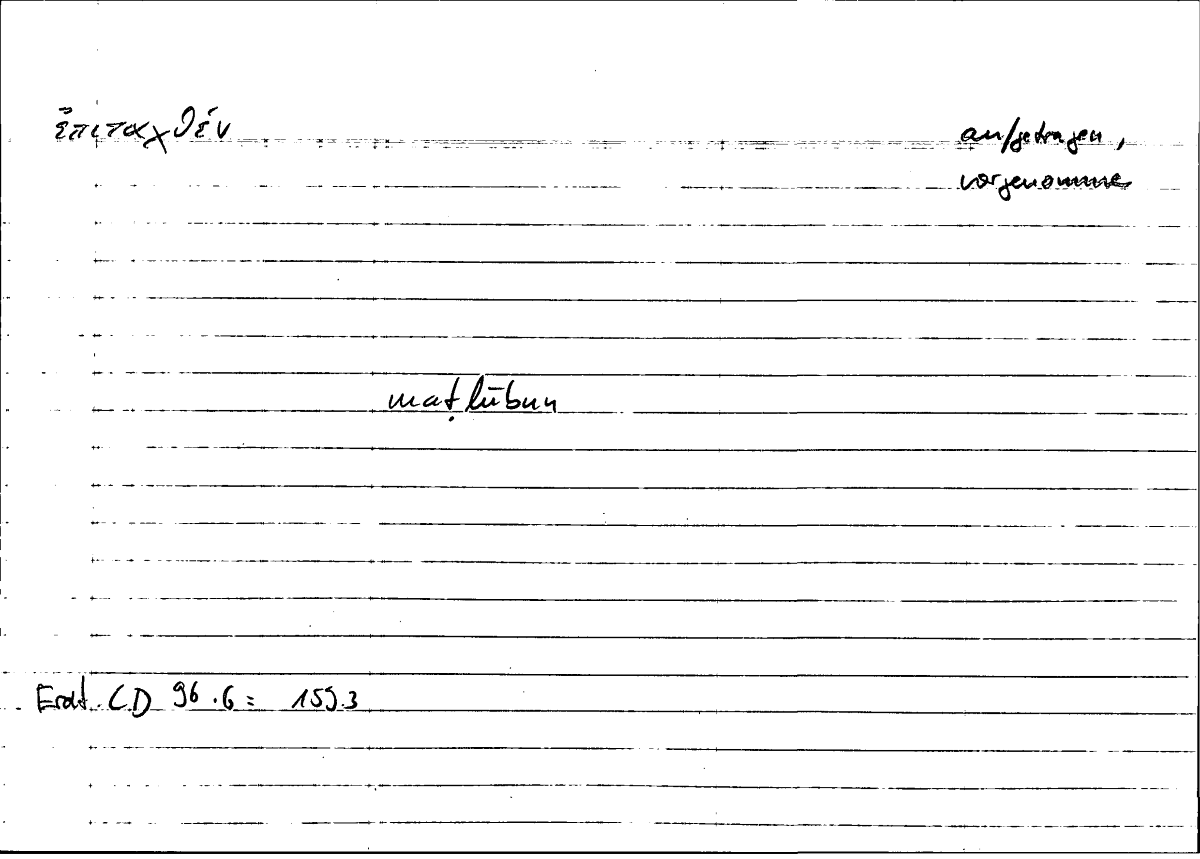 ἐπιταχθέν aufgetragen,
vorgenomme
maṭlūbun
Erat. CD 96.6 = 159.3